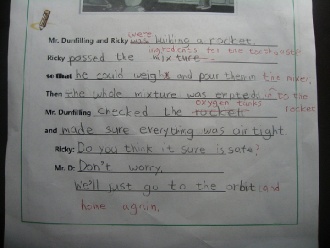 were
Mr. Dunfilling and Ricky was building a rocket.
ingredients for the toothpaste
Ricky passed the mixture
so that he could weight and pour them in the mixer.
Then the whole mixture was emptied to the
oxygen tanks
Mr. Dunfilling checked the rocket rocket
and made sure everything was airtight
Ricky: Do you think it sure is safe?
Mr. D: Don't worry,
We'll just go to the orbit and
home again.